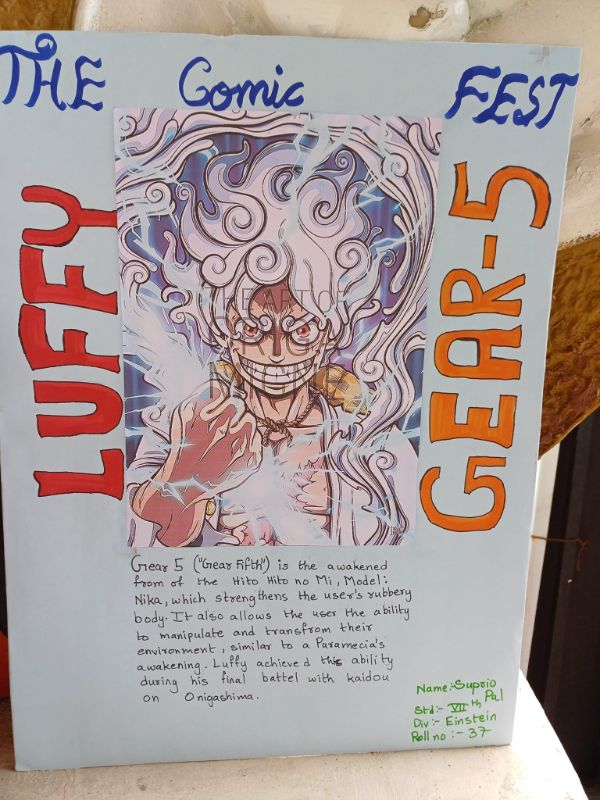 THE Comic FEST
LUFFY
GEAR-5
Gear 5 ("Gear Fifth") is the awakened
from of the Hito Hito no Mi, Model:
Nika, which strengthens the user's rubbery
body. It also allows the user the ability
to manipulate and transfrom their
environment, similar to a Paramecia's
awakening. Luffy achieved this ability
during his final battel with kaidou
on Onigashima.
Name:-Suprio
Pal
Std:- VII th
Div:- Einstein
Roll no :- 37